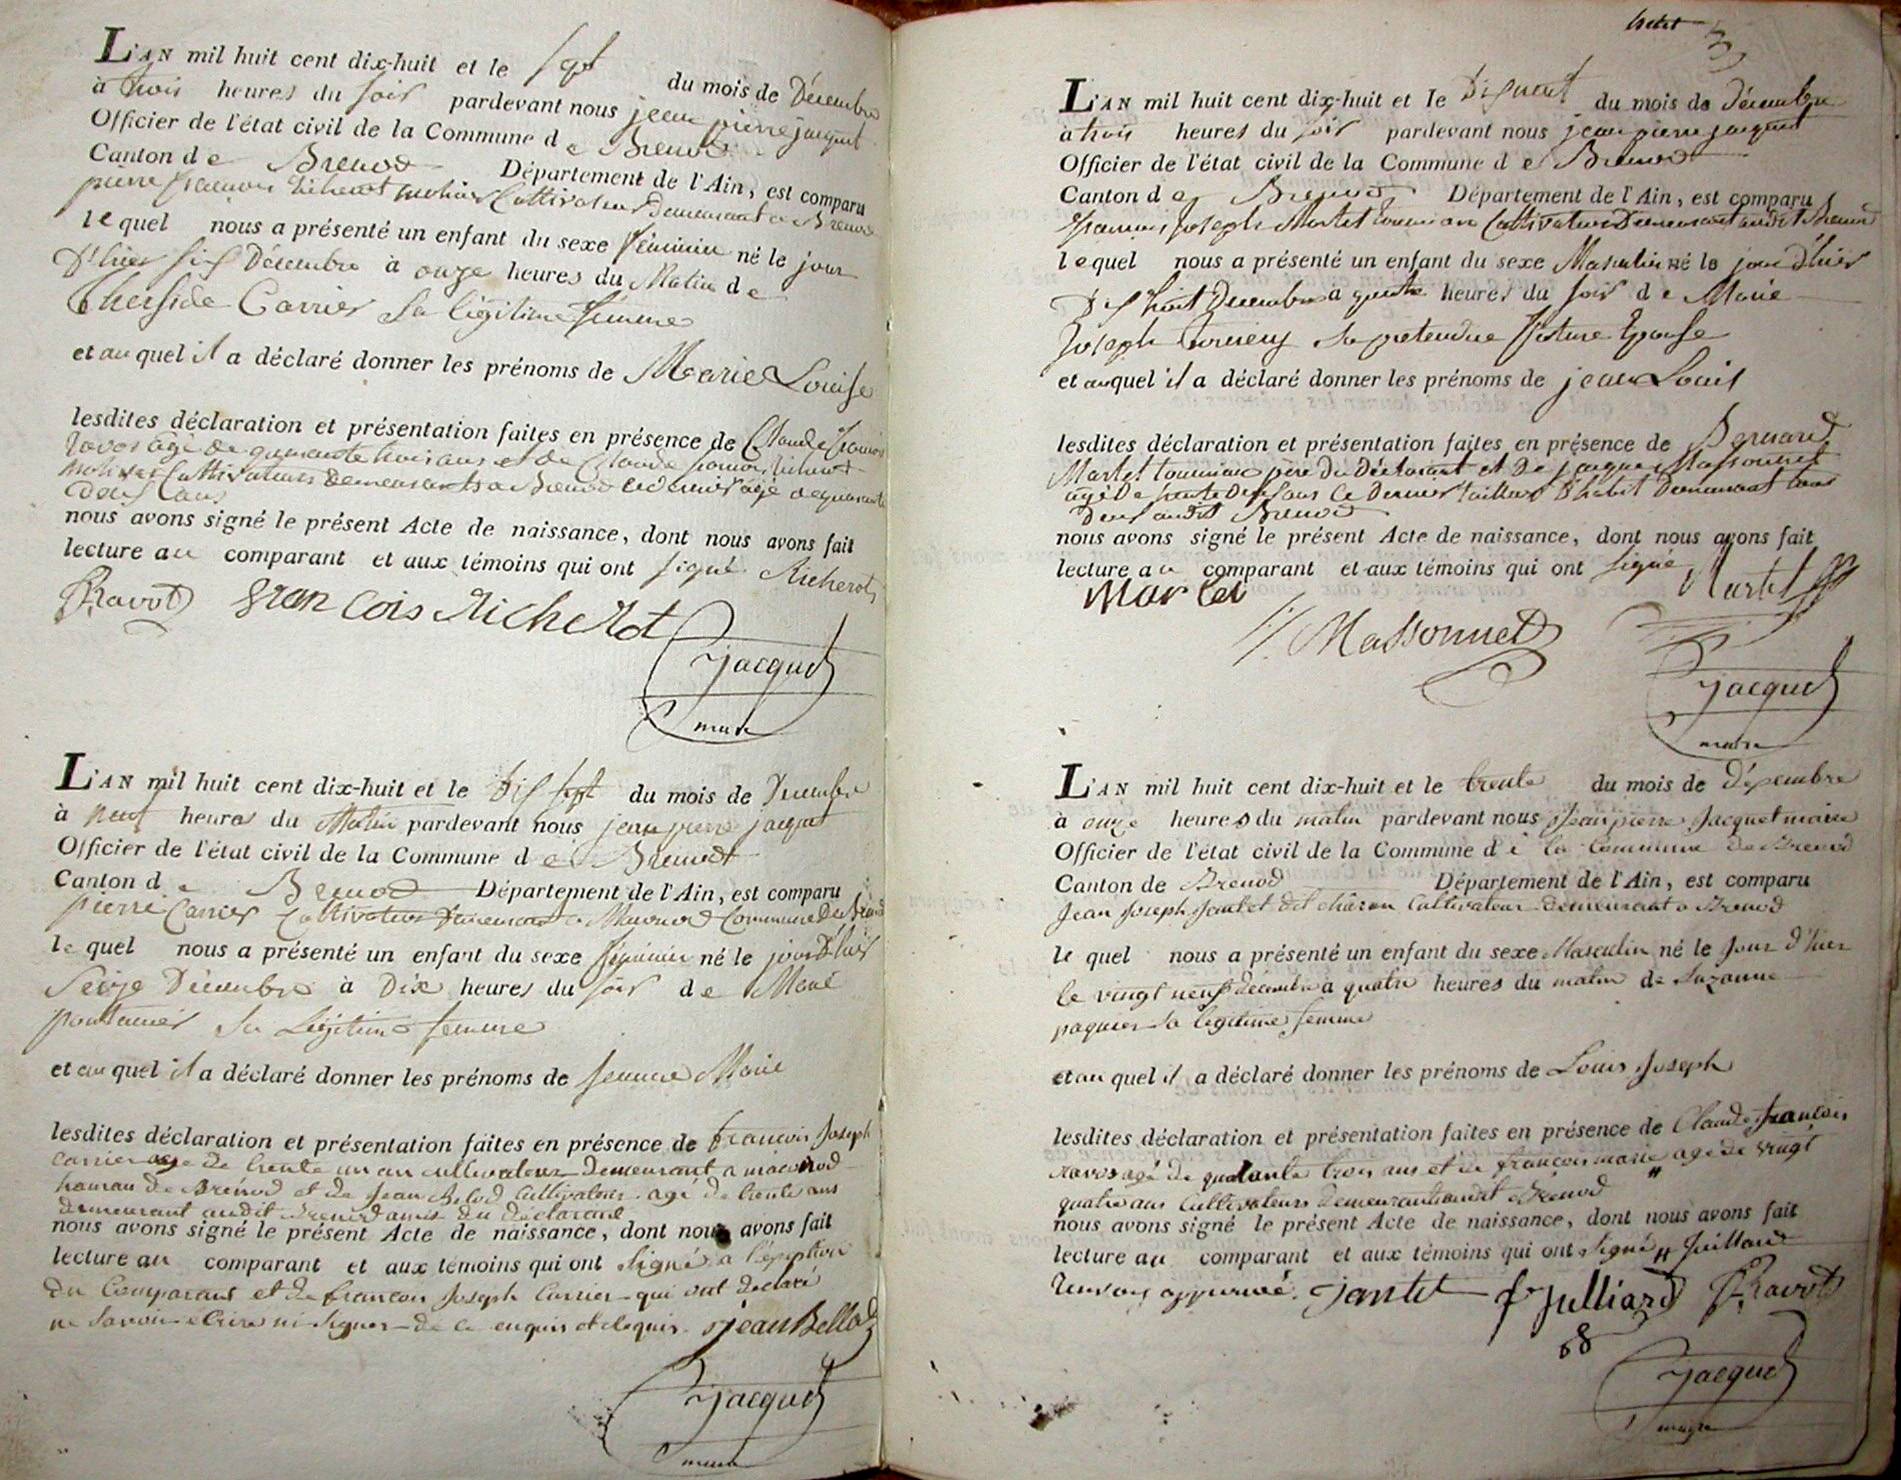 L'AN mil huit cent dix-huit et le sept du mois de Décembre
à trois heures du soir pardevant nous jean pierre jacquet
Officier de l'état civil de la Commune de Brenod
Canton de Brenod Département de l'Ain, est comparu
pierre francois Richerot Cultivateur Demeurant a Brenod
lequel nous a présenté un enfant du sexe féminin né le jour
D'hier six Décembre à onze heures du Matin de
Carrier Sa légitime femme
et auquel il a déclaré donner les prénoms de Marie Louise
lesdites déclaration et présentation faites en présence de Claude françois
ravot agé de quarante trois ans et de Claude francois Richerot
Cultivateurs Demeurants a Brenod ce dernier agé de quarante
deux ans
nous avons signé le présent Acte de naissance, dont nous avons fait
lecture au comparant et aux témoins qui ont signé Richerot
Ravot françois Richerot
jacquet
maire
L'AN mil huit cent dix-huit et le dix sept du mois de Décembre
à neuf heures du Matin pardevant nous jean pierre jacquet
Officier de l'état civil de la Commune de Brenod
Canton de Brenod Département de l'Ain, est comparu
pierre Carrier Cultivateur Demeurant a Macornod Commune De Brenod
lequel nous a présenté un enfant du sexe féminin né le jour D'hier
Seize Décembre à Dix heures du soir de Marie
sa Légitime femme
et auquel il a déclaré donner les prénoms de jeanne Marie
lesdites déclaration et présentation faites en présence de francois Joseph
carrier age de trente un an cultivateur demeurant a macornod
hameau de Brénod et de Jean Belod Cultivateur agé de trente ans
demeurant audit Brenod amis du déclarant
nous avons signé le présent Acte de naissance, dont nous avons fait
lecture au comparant et aux témoins qui ont signé a l'exeption
du Comparant et de francois Joseph Carrier qui ont declaré
ne savoir ecrire ni signer de ce enquis et requis. jean Bellod
jacquet
maire
L'AN mil huit cent dix-huit et le Dix neuf du mois de Décembre
à trois heures du soir pardevant nous jean pierre jacquet
Officier de l'état civil de la Commune de Brenod
Canton de Brenod Département de l'Ain, est comparu
francois joseph Martet Cultivateur Demeurant audit Brenod
lequel nous a présenté un enfant du sexe Masculin né le jour d'hier
Dix huit Décembre à quatre heures du soir de Marie
Joseph sa pretendue future Epouse
et auquel il a déclaré donner les prénoms de jean Louis
lesdites déclaration et présentation faites en présence de Bernard
Martet père Du Déclarant et De jacques Massonnet
agé De trente Deux ans ce Dernier tailleur D'habit Demeurant tous
Deux audit Brenod
nous avons signé le présent Acte de naissance, dont nous avons fait
lecture au comparant et aux témoins qui ont signé Martet
Martet
J. Massonnet
jacquet
maire
L'AN mil huit cent dix-huit et le trente du mois de Décembre
à onze heures du matin pardevant nous Jean pierre Jacquet maire
Officier de l'état civil de la Commune de la Commune de Brenod
Canton de Brenod Département de l'Ain, est comparu
Jean Joseph Jantet dit Cultivateur demeurant a Brenod
lequel nous a présenté un enfant du sexe Masculin né le Jour d'hier
le vingt neuf décembre à quatre heures du matin de Suzanne
paquier sa legitime femme
et auquel il a déclaré donner les prénoms de Louis Joseph
lesdites déclaration et présentation faites en présence de Claude francois
ravot agé de quarante trois ans et de francois marie " agé de vingt
quatre ans Cultivateurs demeurant audit Brénod
nous avons signé le présent Acte de naissance, dont nous avons fait
lecture au comparant et aux témoins qui ont signé " Juilliard
renvoy approuvé. jantet fr Julliard Ravot
68
jacquet
maire